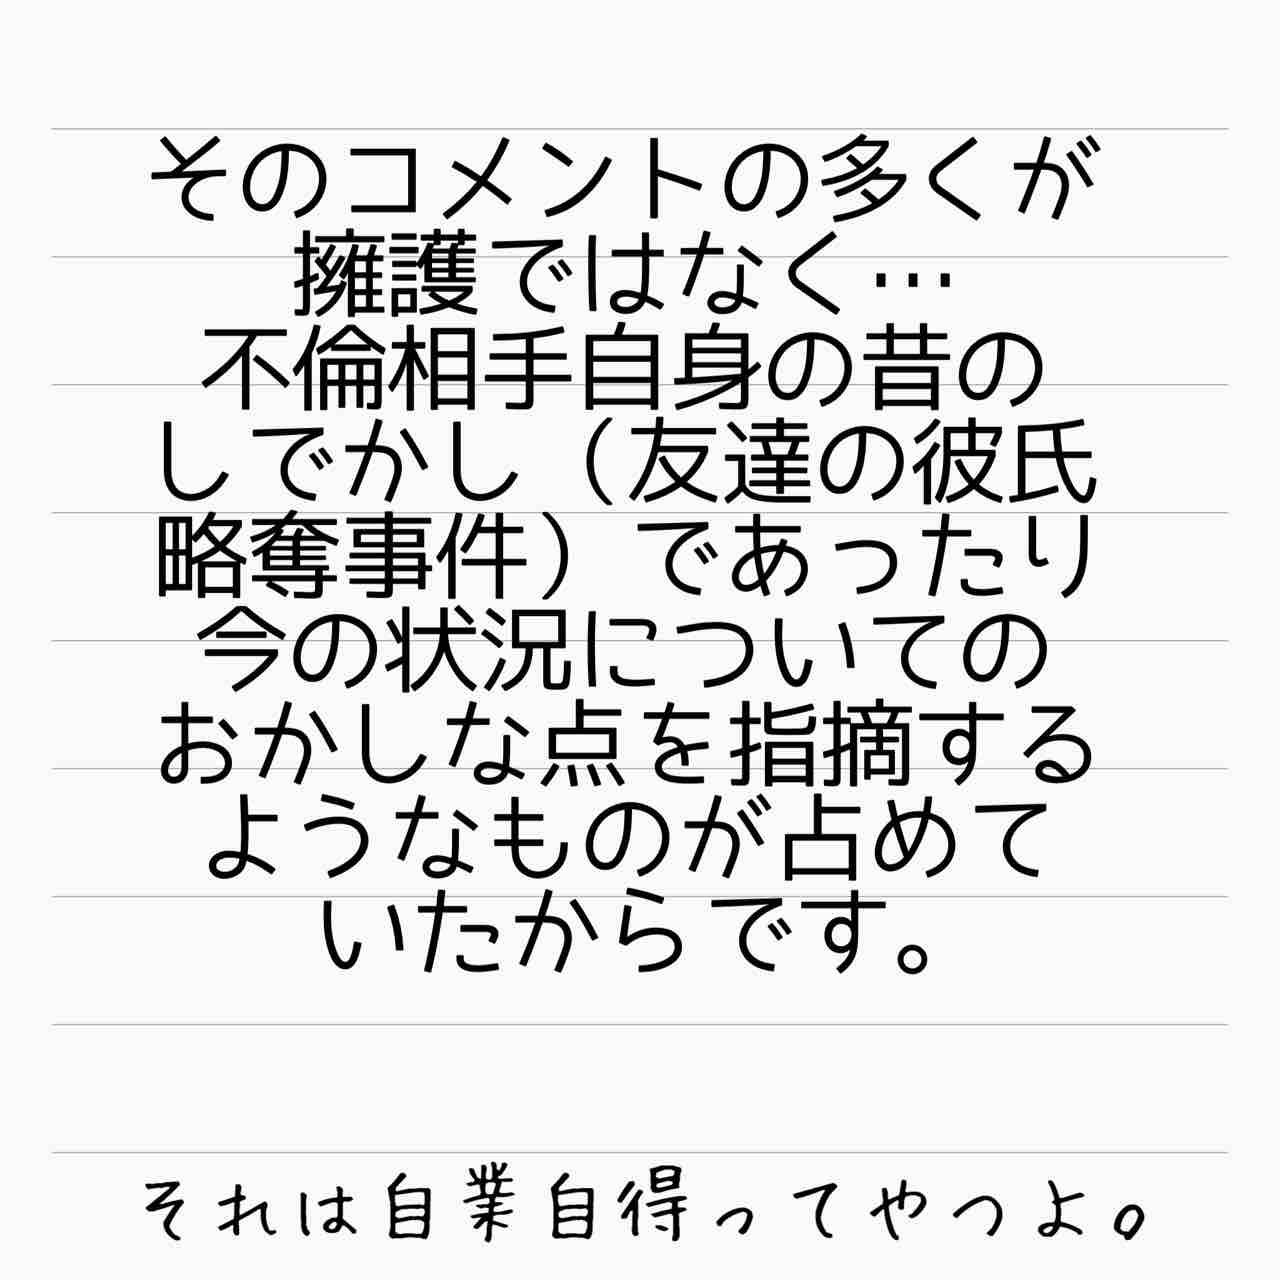 そのコメントの多くが
擁護ではなく…
不倫相手自身の昔の
しでかし（友達の彼氏
略奪事件）であったり
今の状況についての
おかしな点を指摘する
ようなものが占めて
いたからです。
それは自業自得ってやつよ。